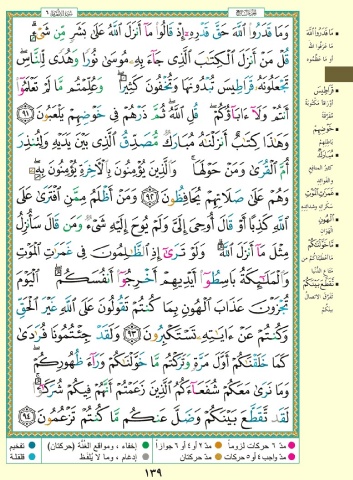 وَمَا قَدَرُوا۟ ٱللَّهَ حَقَّ قَدْرِهِۦٓ إِذْ قَالُوا۟ مَآ أَنزَلَ ٱللَّهُ عَلَىٰ بَشَرٍ مِّن شَىْءٍ ۗ
قُلْ مَنْ أَنزَلَ ٱلْكِتَٰبَ ٱلَّذِى جَآءَ بِهِۦ مُوسَىٰ نُورًا وَهُدًى لِّلنَّاسِ ۖ
تَجْعَلُونَهُۥ قَرَاطِيسَ تُبْدُونَهَا وَتُخْفُونَ كَثِيرًا ۖ وَعُلِّمْتُم مَّا لَمْ تَعْلَمُوٓا۟
أَنتُمْ وَلَآ ءَابَآؤُكُمْ ۖ قُلِ ٱللَّهُ ۖ ثُمَّ ذَرْهُمْ فِى خَوْضِهِمْ يَلْعَبُونَ ٩١
وَهَٰذَا كِتَٰبٌ أَنزَلْنَٰهُ مُبَارَكٌ مُّصَدِّقُ ٱلَّذِى بَيْنَ يَدَيْهِ وَلِتُنذِرَ
أُمَّ ٱلْقُرَىٰ وَمَنْ حَوْلَهَا ۚ وَٱلَّذِينَ يُؤْمِنُونَ بِٱلْءَاخِرَةِ يُؤْمِنُونَ بِهِۦ ۖ
وَهُمْ عَلَىٰ صَلَاتِهِمْ يُحَافِظُونَ ٩٢ وَمَنْ أَظْلَمُ مِمَّنِ ٱفْتَرَىٰ عَلَى
ٱللَّهِ كَذِبًا أَوْ قَالَ أُوحِىَ إِلَىَّ وَلَمْ يُوحَ إِلَيْهِ شَىْءٌ وَمَن قَالَ سَأُنزِلُ
مِثْلَ مَآ أَنزَلَ ٱللَّهُ ۗ وَلَوْ تَرَىٰٓ إِذِ ٱلظَّٰلِمُونَ فِى غَمَرَٰتِ ٱلْمَوْتِ
وَٱلْمَلَٰٓئِكَةُ بَاسِطُوٓا۟ أَيْدِيهِمْ أَخْرِجُوٓا۟ أَنفُسَكُمُ ۖ ٱلْيَوْمَ
تُجْزَوْنَ عَذَابَ ٱلْهُونِ بِمَا كُنتُمْ تَقُولُونَ عَلَى ٱللَّهِ غَيْرَ ٱلْحَقِّ
وَكُنتُمْ عَنْ ءَايَٰتِهِۦ تَسْتَكْبِرُونَ ٩٣ وَلَقَدْ جِئْتُمُونَا فُرَٰدَىٰ
كَمَا خَلَقْنَٰكُمْ أَوَّلَ مَرَّةٍ وَتَرَكْتُم مَّا خَوَّلْنَٰكُمْ وَرَآءَ ظُهُورِكُمْ ۖ
وَمَا نَرَىٰ مَعَكُمْ شُفَعَآءَكُمُ ٱلَّذِينَ زَعَمْتُمْ أَنَّهُمْ فِيكُمْ شُرَكَٰٓؤُا۟ ۚ
لَقَد تَّقَطَّعَ بَيْنَكُمْ وَضَلَّ عَنكُم مَّا كُنتُمْ تَزْعُمُونَ ٩٤
ما قدروا الله
ما عرفوا الله
أو ما عظّموه
قراطيس
أوراقا مكتوبة
مفرّقة
خوضهم
باطلهم
مبارك
كثير المنافع
والفوائد
غمرات الموت
سكراته وشدائده
الهون
الهوان
ما خوّلناكم
ما أعطيناكم من
متاع الدنيا
تقطّع بينكم
تفرّق الاتصال
بينكم
مدّ ٦ حركات لزوماً
مدّ ٢ أو ٤ أو ٦ جوازاً
إخفاء، ومواقع الغُنَّة (حركتان)
تفخيم
مدّ واجب ٤ أو ٥ حركات
مدّ حركتان
إدغام، وما لا يُلفَظ
قلقلة
١٣٩